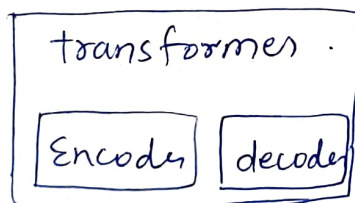 transformer.
Encoder decoder